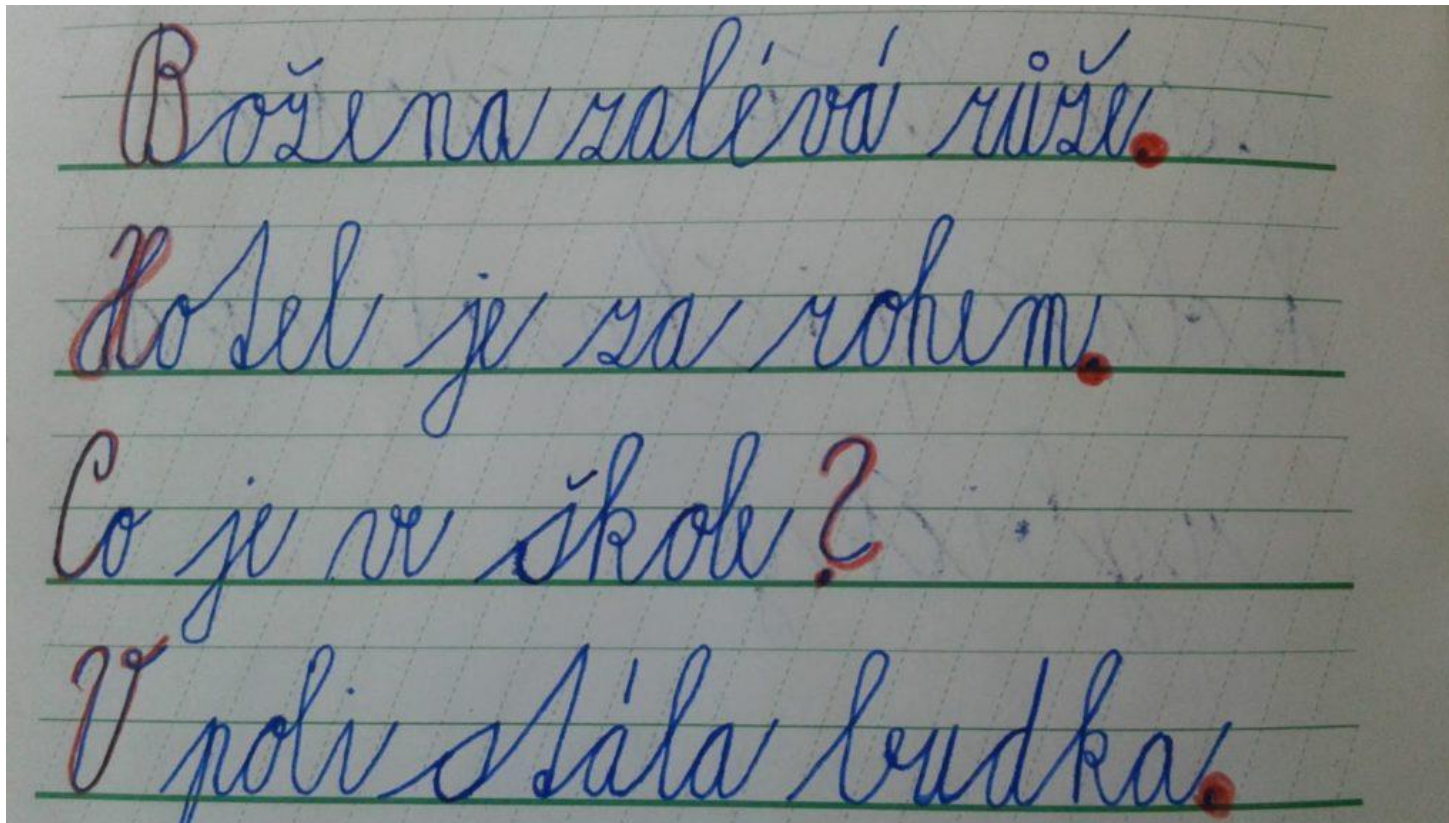 Božena zalévá růže.
Hotel je za rohem.
Co je ve škole?
V poli stála budka.